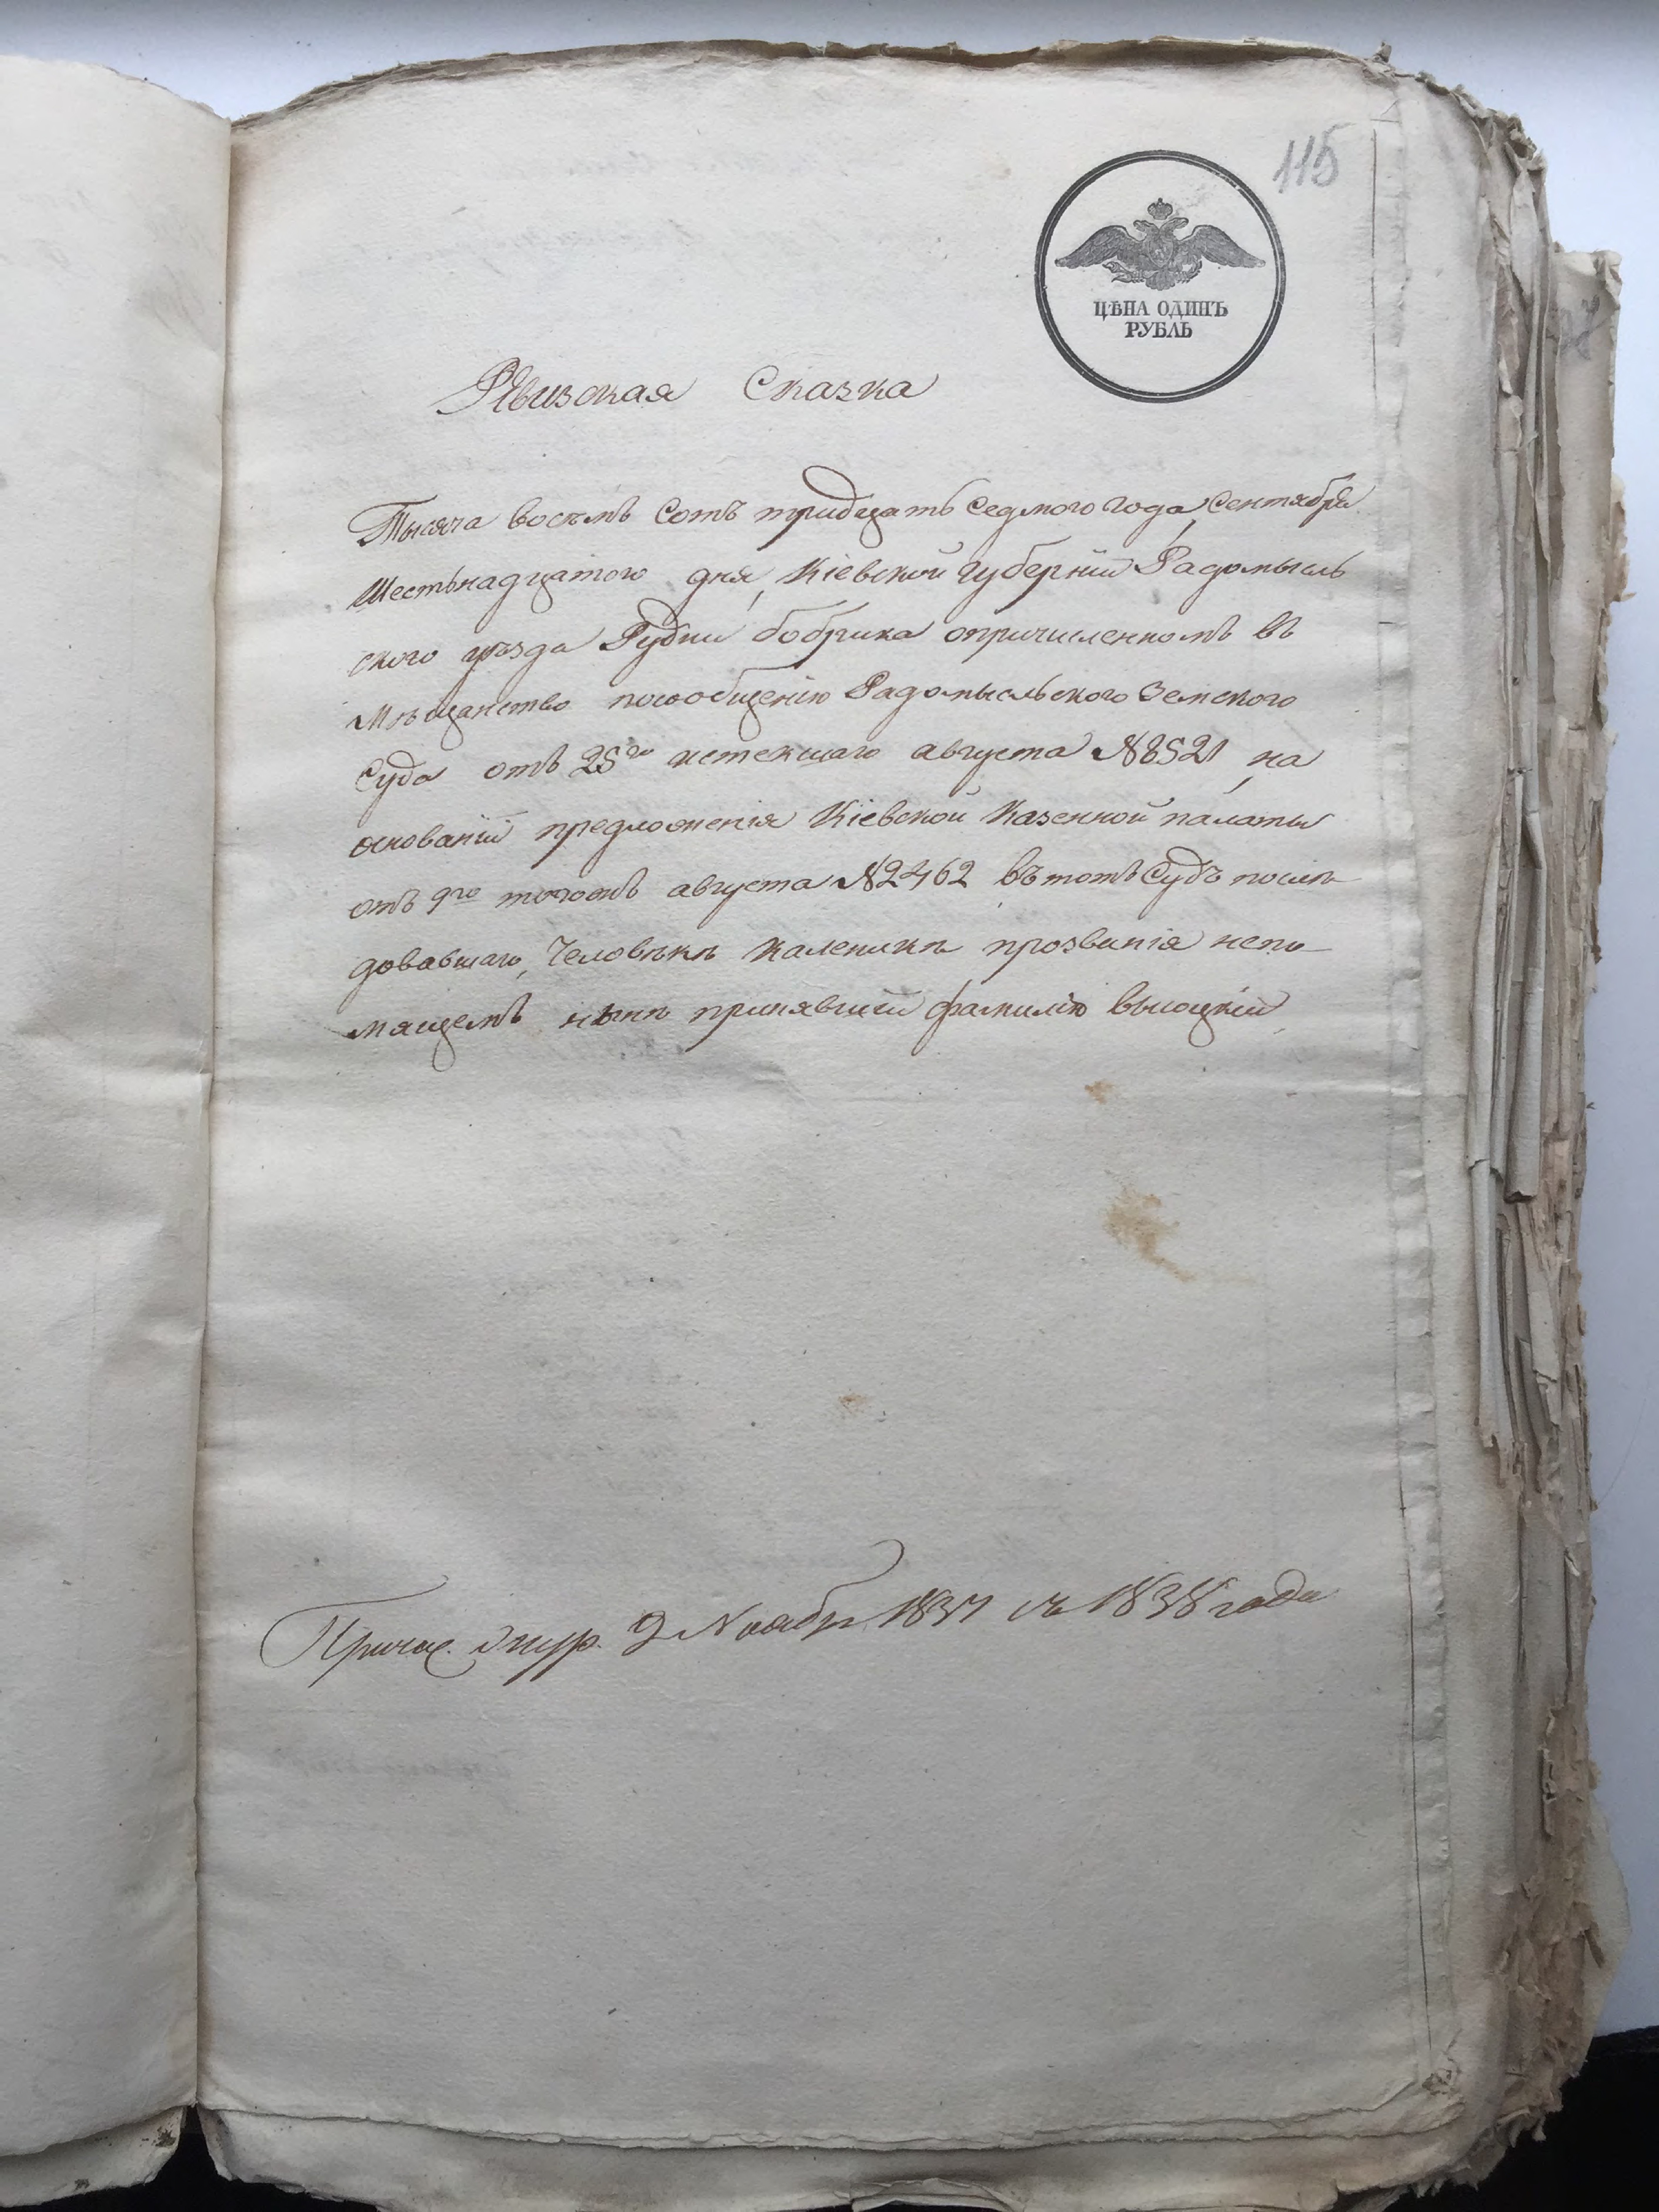 115
ЦѢНА ОДИНЪ
РУБЛЬ
Ревизская Сказка
Тысяча восемь сотъ тридцать седмого года, Сентября
Шестьнадцатого дня, Кіевской Губерніи Радомысль
ского уѣзда Рудни бобрика опричисленномъ въ
Мѣщанство посообщенію Радомысльского Земского
Суда отъ 25го истекшаго августа №8521, на
основаніи предложенія Кіевской Казенной палаты
отъ 9го тогожъ августа №2462 въ тотъ Судъ послѣ
довавшаго, Человѣкѣ Каленикѣ прозванія непо
мящемъ нынѣ принявшій фамилію высоцкій
Причис. журн. 9 Ноября 1837 съ 1838 года